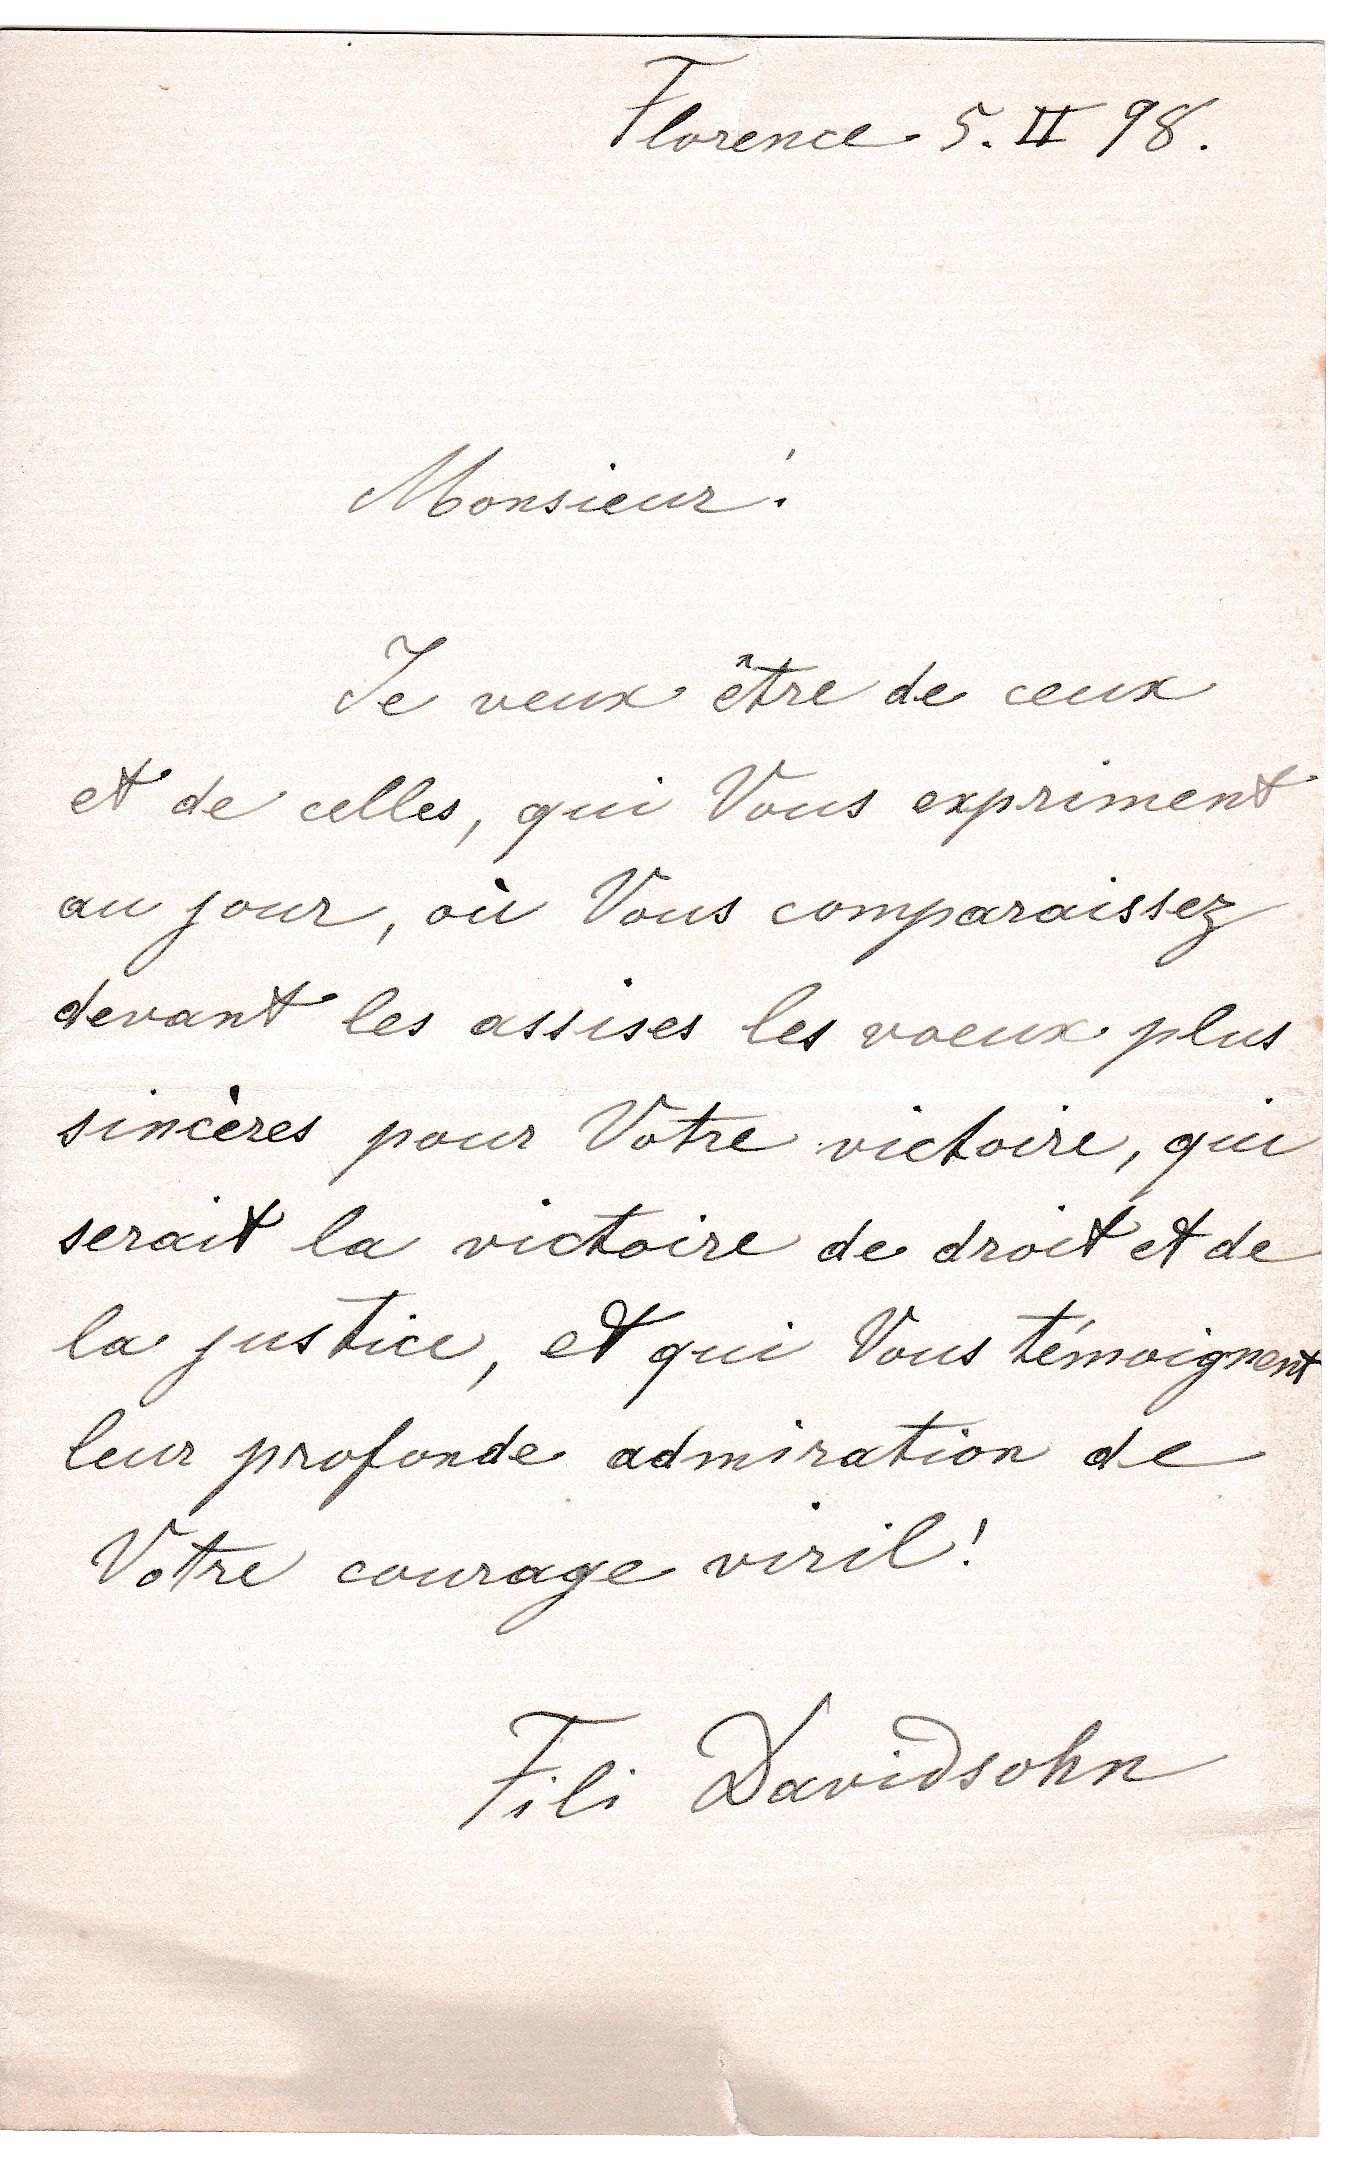 Florence 5. II 98.
Monsieur!
Je veux être de ceux
et de celles, qui Vous expriment
au jour, où Vous comparaissez
devant les assises les voeux plus
sincères pour Votre victoire, qui
serait la victoire de droit et de
la justice, et qui Vous témoignent
leur profonde admiration de
Votre courage viril!
Fili Davidsohn